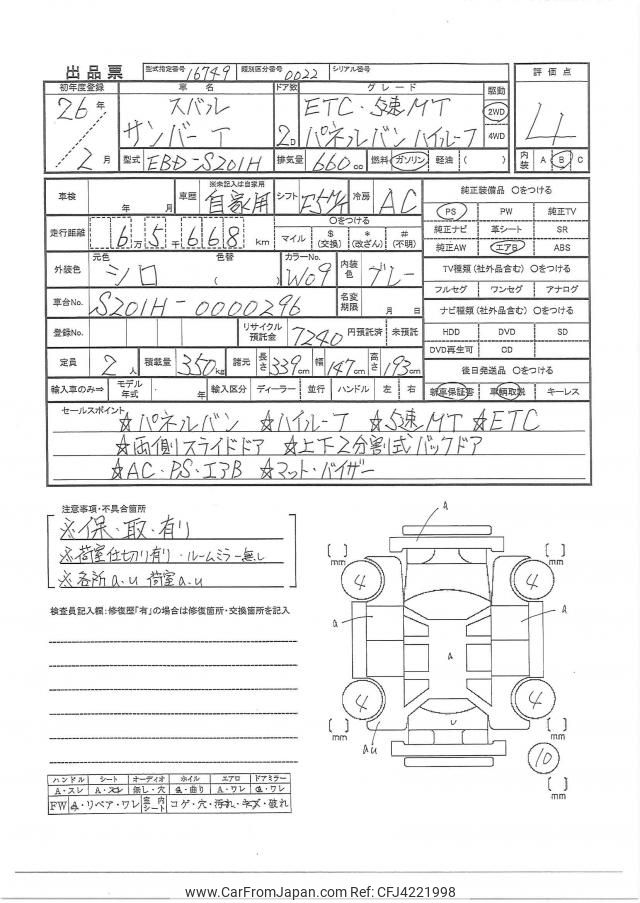 出品票 型式指定番号 16749 類別区分番号 0022 シリアル番号
初年度登録 車名 ドア数 グレード 駆動 評価点
26年 スバル ETC・5速MT 2WD 4
2月 サンバーT 2D パネルバン ハイルーフ 4WD
型式 EBD-S201H 排気量 660cc 燃料 ガソリン 軽油 ( ) 内装 A B C
車検 年 月 車歴 ※未記入は自家用 自家用 シフト F5M/T 冷房 AC 純正装備品 〇をつける
PS PW 純正TV
走行距離 6万5千668km 〇をつける
マイル $(交換) *(改ざん) #(不明)
純正ナビ 革シート SR
純正AW エアB ABS
外装色 元色 シロ 色替 ( ) カラーNo. W09 内装色 グレー
TV種類(社外品含む) 〇をつける
フルセグ ワンセグ アナログ
車台No. S201H-0000296 名変期限 月 日
ナビ種類(社外品含む) 〇をつける
登録No. リサイクル預託金 7240 円預託済 未預託
HDD DVD SD
DVD再生可 CD
定員 2人 積載量 350kg 諸元 長さ 339cm 幅 147cm 高さ 193cm
後日発送品 〇をつける
輸入車のみ⇒ モデル年式 ・ 年 輸入区分 ディーラー 並行 ハンドル 左 右 新車保証書 車輌取説 キーレス
セールスポイント
☆パネルバン ☆ハイルーフ ☆5速MT ☆ETC
☆両側スライドドア ☆上下2分割式バックドア
☆AC・PS・エアB ☆マット・バイザー
注意事項・不具合箇所
※保・取・有り
※荷室仕切り有り・ルームミラー無し
※各所a.u 荷室a.u
検査員記入欄:修復歴「有」の場合は修復箇所・交換箇所を記入
A
[ ] mm [ ] mm
4 4
a a
A
4 4
U
[ ] mm [ ] mm
au
10
[ ] mm
ハンドル シート オーディオ ホイル エアロ ドアミラー
A・スレ A・スレ 無し・穴 A・曲り A・ワレ A・ワレ
FW A・リペア・ワレ 室内シート コゲ・穴・汚れ・キズ・破れ
www.CarFromJapan.com Ref: CFJ4221998